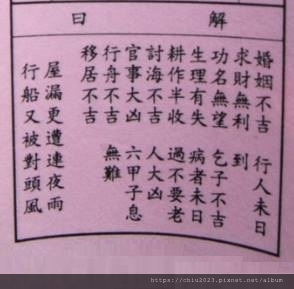 解曰
婚姻不吉 行人未日
求財無利 到
功名無望 乞子不吉
生理有失 病者未日
耕作半收 過不要老
討海不吉 人大凶
官事大凶 六甲子息
行舟不吉 無難
移居不吉
屋漏更遭連夜雨
行船又被對頭風
https://chiu2023.pixnet.net/album